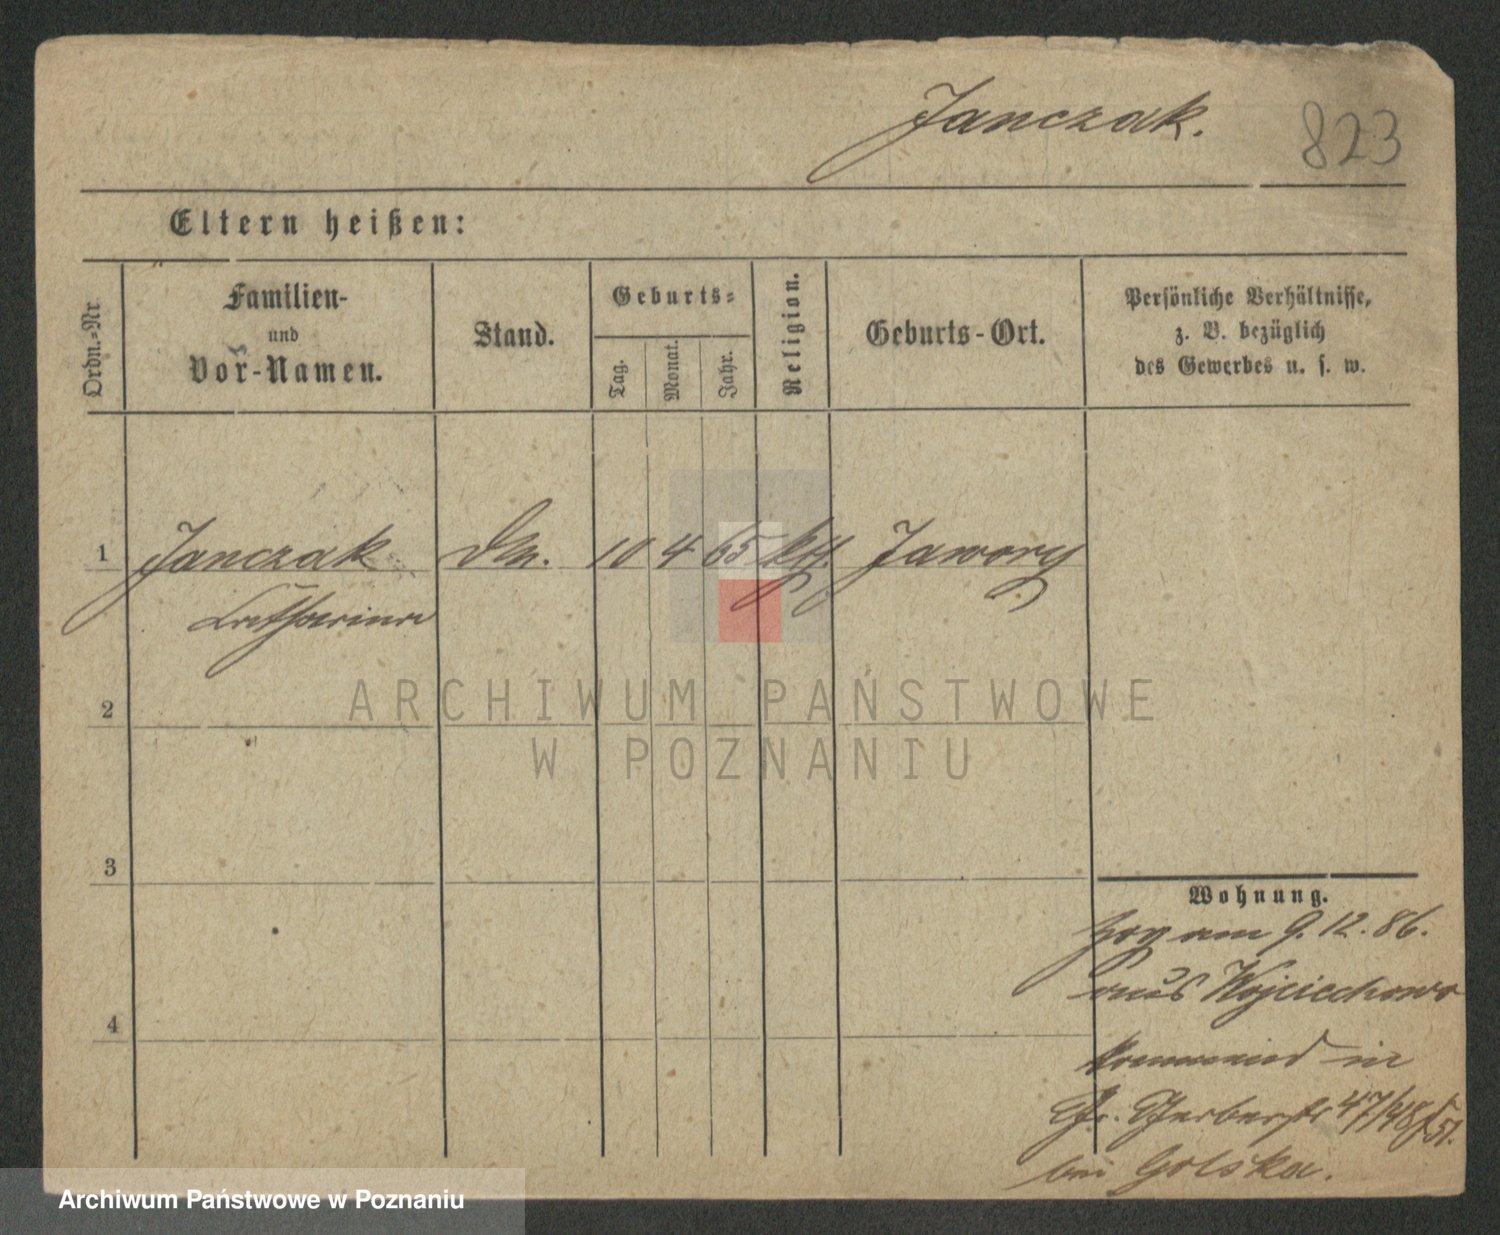 Janczak.
823
Eltern heißen:
Ordn.-Nr.
Familien-
und
Vor-Namen.
Stand.
Geburts-
Tag.
Monat.
Jahr.
Religion.
Geburts-Ort.
Persönliche Verhältnisse,
z. B. bezüglich
des Gewerbes u. s. w.
1
Janczak
10
4
65
kth.
Jawory
Catharina
2
ARCHIWUM PAŃSTWOWE
W POZNANIU
3
Wohnung.
Zog am 9. 12. 86.
aus Wojciechowo
kommend in
4
Gr. Gerberstr 47/48
bei Golska.
Archiwum Państwowe w Poznaniu